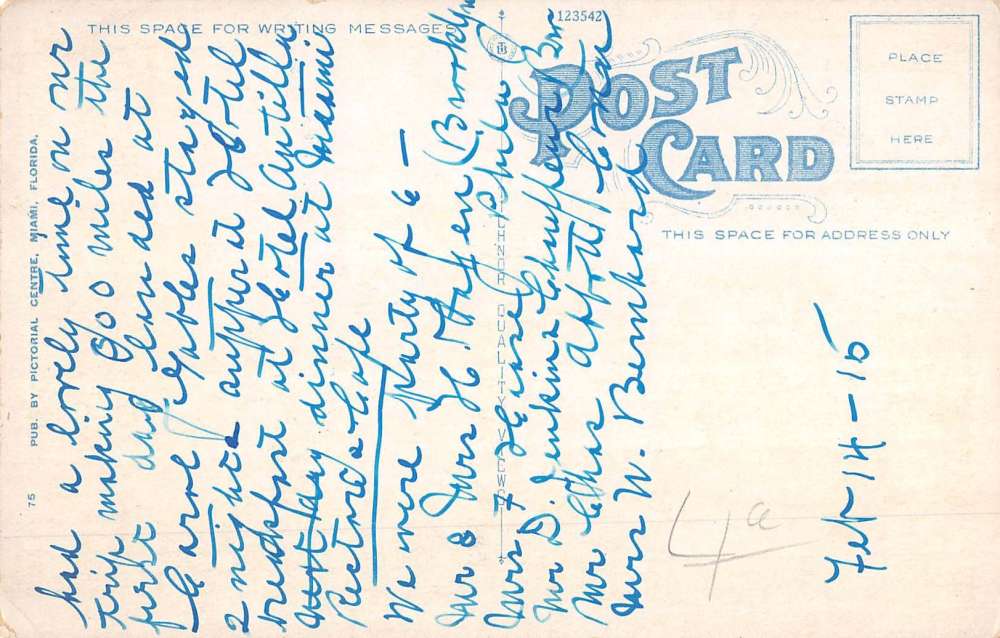 THIS SPACE FOR WRITING MESSAGES
123542
POST
CARD
PLACE
STAMP
HERE
THIS SPACE FOR ADDRESS ONLY
75 PUB. BY PICTORIAL CENTRE, MIAMI, FLORIDA.
had a lovely time on our
trip making 900 miles the
first day landed at
Carol Gables stayed
2 nights supper at Hotel
breakfast at Hotel Antilla
next day dinner at Miami
Cafe
We were party of 6 —
Mr & Mrs H. (Brooklyn
Mrs
Mr D. Jenkins
Mr Chas Abbott
Mrs W. Bernhard
Feb 14-15
4